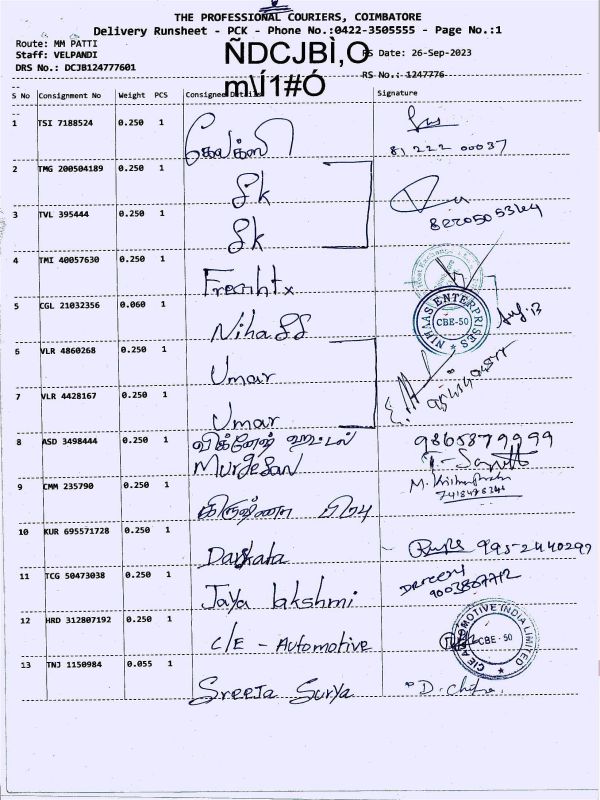 THE PROFESSIONAL COURIERS, COIMBATORE
Delivery Runsheet - PCK - Phone No.:0422-3505555 - Page No.:1
Route: MM PATTI
Staff: VELPANDI
DRS No.: DCJB124777601
ÑDCJBÌ,O
m\Í1#Ó
RS Date: 26-Sep-2023
RS No.: 1247776
S No Consignment No Weight PCS Consignee Details Signature
1 TSI 7188524 0.250 1
81 222 00037
2 TMG 200504189 0.250 1 SK
3 TVL 395444 0.250 1 SK
4 TMI 40057630 0.250 1
5 CGL 21032356 0.060 1 Nihass
NIHAAS ENTERPRISES CBE-50
6 VLR 4860268 0.250 1 Umar
7 VLR 4428167 0.250 1 Umar
8 ASD 3498444 0.250 1 விக்னேஷ் ஹட்டல் 9865879999
Murgesan
9 CMM 235790 0.250 1
10 KUR 695571728 0.250 1 9952440297
11 TCG 50473038 0.250 1 Jaya lakshmi
12 HRD 312807192 0.250 1 C/E - Automotive
CIE AUTOMOTIVE INDIA LIMITED CBE - 50
13 TNJ 1150984 0.055 1 Sreeja Surya